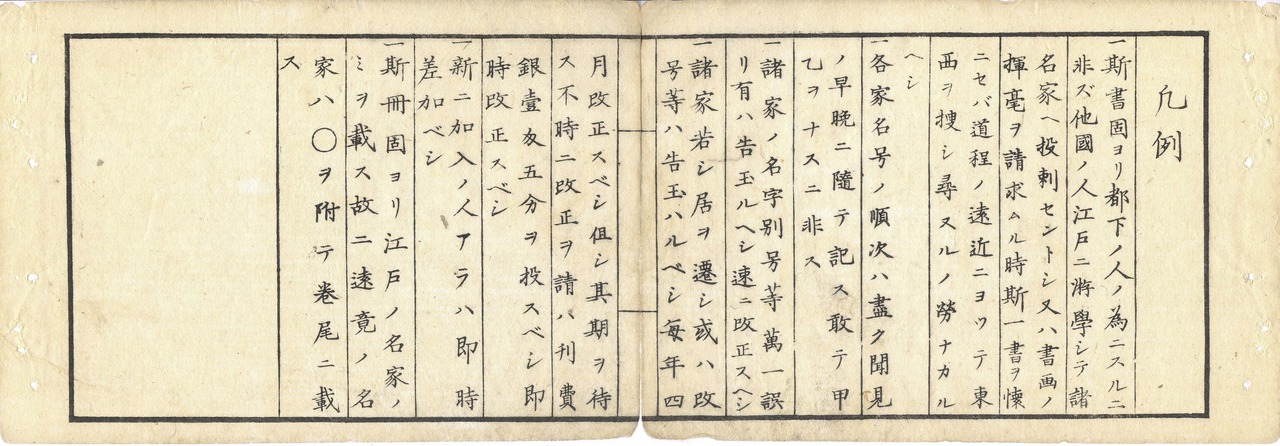 凡例
一斯書固ヨリ都下ノ人ノ為ニスルニ
非ズ他國ノ人江戸ニ游學シテ諸
名家ヘ投刺セントシ又ハ書画ノ
揮毫ヲ請求ムル時斯一書ヲ懐
ニセバ道程ノ遠近ニヨツテ東
西ヲ捜シ尋ヌルノ勞ナカル
ヘシ
一各家名号ノ順次ハ盡ク聞見
ノ早晩ニ隨テ記ス敢テ甲
乙ヲナスニ非ス
一諸家ノ名字別号等萬一誤
リ有ハ告玉ルヘシ速ニ改正スヘシ
一諸家若シ居ヲ遷シ或ハ改
号等ハ告玉ハルベシ毎年四
月改正スベシ伹シ其期ヲ待
ス不時ニ改正ヲ請ハ刊費
銀壹匁五分ヲ投スベシ即
時改正スベシ
一新ニ加入ノ人アラハ即時
差加ベシ
一斯冊固ヨリ江戸ノ名家ノ
ミヲ載ス故ニ遠竟ノ名
家ハ〇ヲ附テ巻尾ニ載
ス